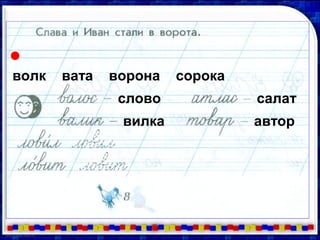 Слава и Иван стали в ворота.
волк вата ворона сорока
волос – слово атлас – салат
валик – вилка товар – автор
лови́л ловил
ло́вит ловит
8